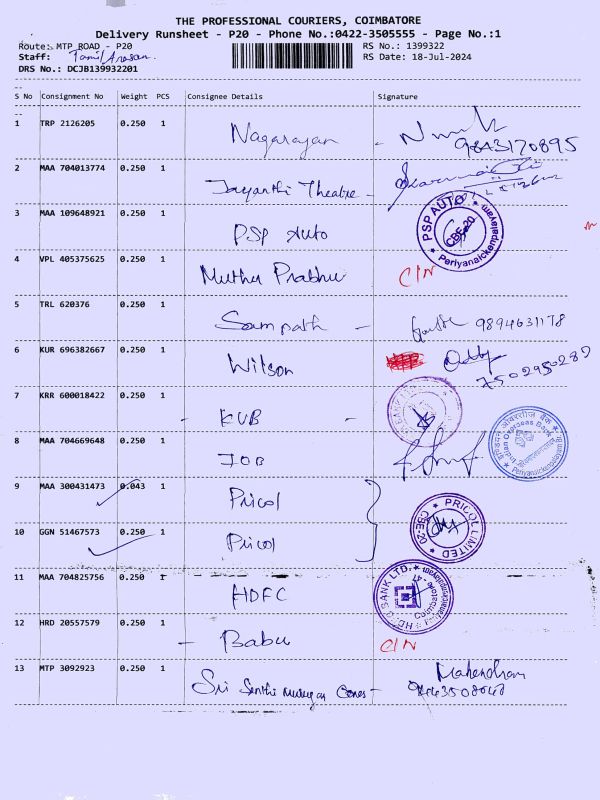 THE PROFESSIONAL COURIERS, COIMBATORE
Delivery Runsheet - P20 - Phone No.:0422-3505555 - Page No.:1
Route: MTP ROAD - P20 RS No.: 1399322
Staff: Tamil Arasan. RS Date: 18-Jul-2024
DRS No.: DCJB139932201
S No Consignment No Weight PCS Consignee Details Signature
1 TRP 2126205 0.250 1 Nagarayan - 9843170895
2 MAA 704013774 0.250 1 Jayanthi Theatre -
3 MAA 109648921 0.250 1 PSP Auto
PSP AUTO CBE-20 Periyanaickenpalayam
4 VPL 405375625 0.250 1 Muthu Prabhu C/N
5 TRL 620376 0.250 1 Sampath - 9894631178
6 KUR 696382667 0.250 1 Wilson 7502950289
7 KRR 600018422 0.250 1 - KVB -
BANK LTD
8 MAA 704669648 0.250 1 IOB
इंडियन ओवरसीज़ बैंक Indian Overseas Bank Periyanaickenpalayam Br.
9 MAA 300431473 0.043 1 Pricol
10 GGN 51467573 0.250 1 Pricol
PRICOL LIMITED CBE-20
11 MAA 704825756 0.250 1 HDFC
HDFC BANK LTD. Periyanaickenpalayam Coimbatore - 47
12 HRD 20557579 0.250 1 - Babu C/N
13 MTP 3092923 0.250 1 Sri Senthi Murugan Cones - Mahendran